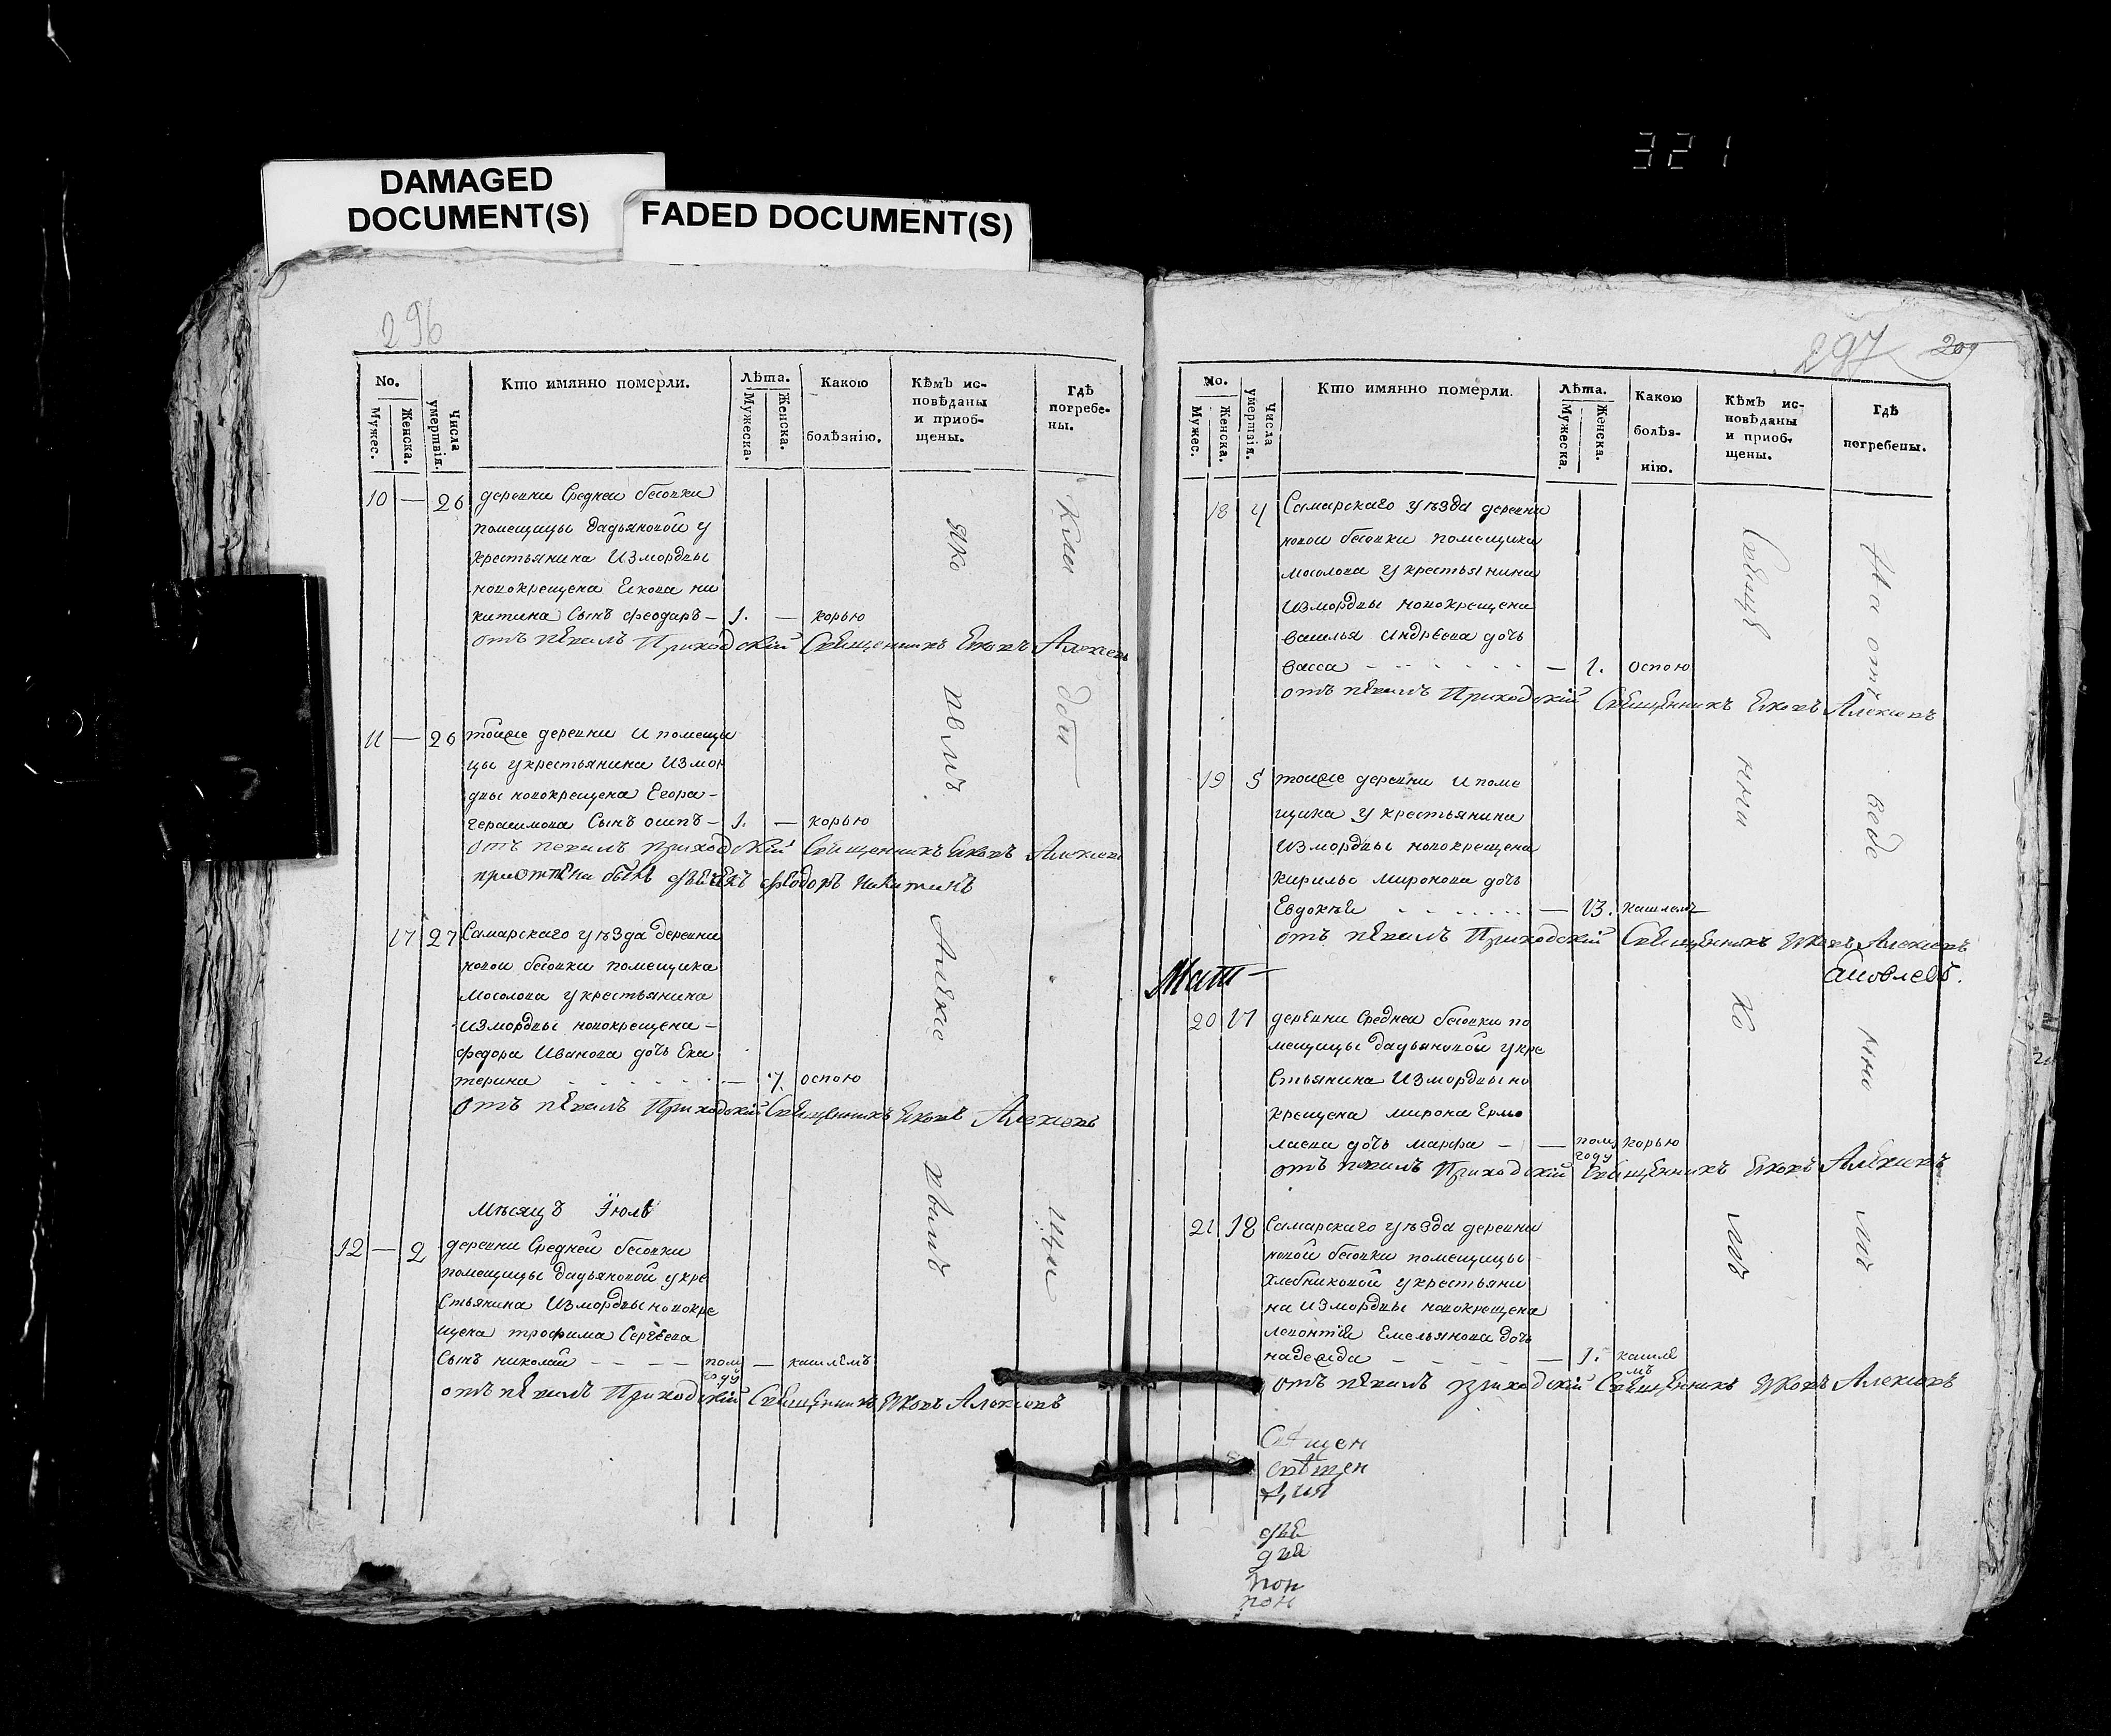 DAMAGED
DOCUMENT(S)
FADED DOCUMENT(S)
321
296
No.
Мужес.
Женска.
Числа умертвія.
Кто имянно померли.
Лѣта.
Мужеска.
Женска.
Какою
болѣзнію.
Кѣмъ ис-
повѣданы
и приоб-
щены.
Гдѣ
погребе-
ны.
10 — 26 деревни Средней бесовки
помещицы дадьяновой у
крестьянина Измордвы
новокрещена Еікова ни
китина Сынъ феодаръ — 1. — корью
отъ пѣвалъ Приходскій Священникъ Іяковъ Алексѣевъ
11 — 26 тоиже деревни и помещи
цы укрестьянина Измор
двы новокрещена Егора —
герасимова Сынъ осипъ — 1. — корью
отъ певалъ приходскій Священникъ Іяковъ Алексѣевъ
федоръ никитинъ
17 27 Самарскаго уѣзда деревни
новои бесовки помещика
Мосолова укрестьянина
Измордвы новокрещена —
федора Иванова дочь Ека
терина — 7. оспою
отъ пѣвалъ Приходскій Священникъ Іяковъ Алексѣевъ
Мѣсяцъ Іюль
12 — 2 деревни Средней бесовки
помещицы дадьяновой укре
стьянина Измордвы новокре
щена трофима Сергѣева
Сынъ николаи — — — — полу — кашлемъ
году
отъ пѣвалъ Приходскій Священникъ Іяковъ Алексѣевъ
297 209
No.
Мужес.
Женска.
Числа умертвія.
Кто имянно померли.
Лѣта.
Мужеска.
Женска.
Какою
болѣз-
нію.
Кѣмъ ис-
повѣданы
и приоб-
щены.
Гдѣ
погребены.
18 4 Самарскаго уѣзда деревни
новои бесовки помещика
мосолова укрестьянина
Измордвы новокрещена
василья Андрѣева дочь
васса — 1. оспою
отъ пѣвалъ Приходскій Священникъ Іяковъ Алексѣевъ
19 5 тоиже деревни и поме
щика укрестьянина
Измордвы новокрещена
кирилы миронова дочь
Евдокѣя — 13. кашлемъ
отъ пѣвалъ Приходскій Священникъ Іяковъ Алексѣевъ
20 17 деревни Средней бесовки по
мещицы дадьяновой укре
стьянина Измордвы но
крещена мирона Ермо
лаева дочь марфа — — полу корью
году
отъ пѣвалъ Приходскій Священникъ Іяковъ Алексѣевъ
21 18 Самарскаго уѣзда деревни
новой бесовки помещицы
хлебниковой укрестьяни
на Измордвы новокрещена
леонтѣя Емельянова дочь
надежда — — — — — 1. кашле
мъ
отъ пѣвалъ приходскій Священникъ Іяковъ Алексѣевъ